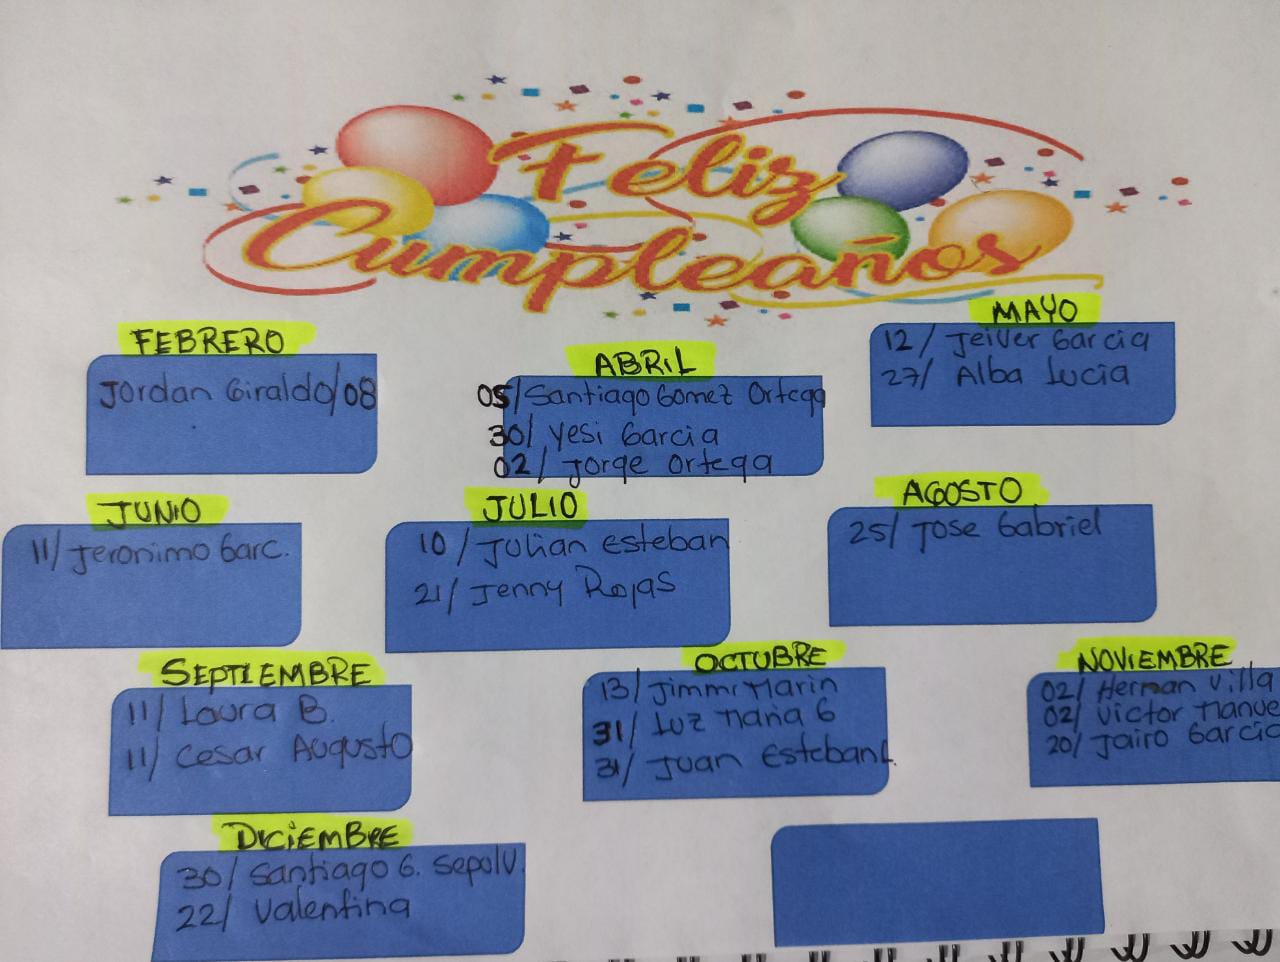 Feliz
Cumpleaños
FEBRERO
Jordan Giraldo/08
ABRIL
05/Santiago Gomez Ortega
30/ Yesi Garcia
02/ Jorge Ortega
MAYO
12/ Jeiver Garcia
27/ Alba Lucia
JUNIO
11/ Jeronimo Garc.
JULIO
10/ Julian esteban
21/ Jenny Rojas
AGOSTO
25/ Jose Gabriel
SEPTIEMBRE
11/ Laura B.
11/ Cesar Augusto
OCTUBRE
13/ Jimmi Marin
31/ Luz Maria G
31/ Juan Esteban
NOVIEMBRE
02/ Herman Villa
02/ Victor Manue
20/ Jairo Garcia
DICIEMBRE
30/ Santiago G. Sepulv.
22/ Valentina